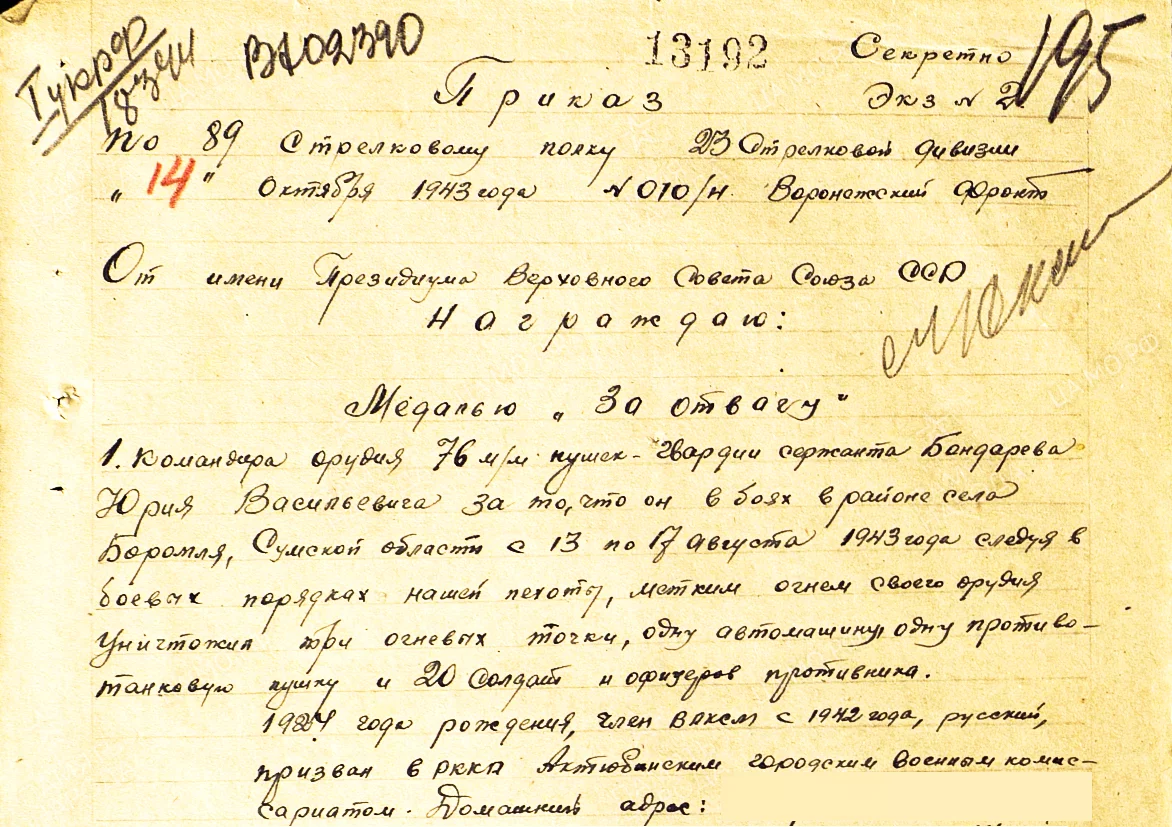 Тукрф
18 зсп
ВА02390
13192
Секретно
195
Приказ
Экз N 2
по 89 Стрелковому полку 23 Стрелковой дивизии
„14" Октября 1943 года N 010/н Воронежский Фронт
От имени Президиума Верховного Совета Союза ССР
Награждаю:
Медалью „За отвагу"
1. Командира орудия 76 м/м пушек - гвардии сержанта Бондарева
Юрия Васильевича за то, что он в боях в районе села
Боромля, Сумской области с 13 по 17 августа 1943 года следуя в
боевых порядках нашей пехоты, метким огнем своего орудия
уничтожил три огневых точки, одну автомашину, одну противо-
танковую пушку и 20 солдат и офицеров противника.
1924 года рождения, член ВЛКСМ с 1942 года, русский,
призван в РККА Актюбинским городским военным комис-
сариатом. Домашний адрес:
ЦАМО.РФ